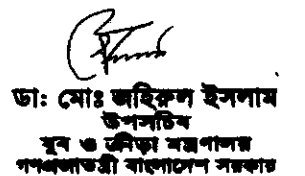 ডা: মোঃ জহিরুল ইসলাম
উপসচিব
যুব ও ক্রীড়া মন্ত্রণালয়
গণপ্রজাতন্ত্রী বাংলাদেশ সরকার